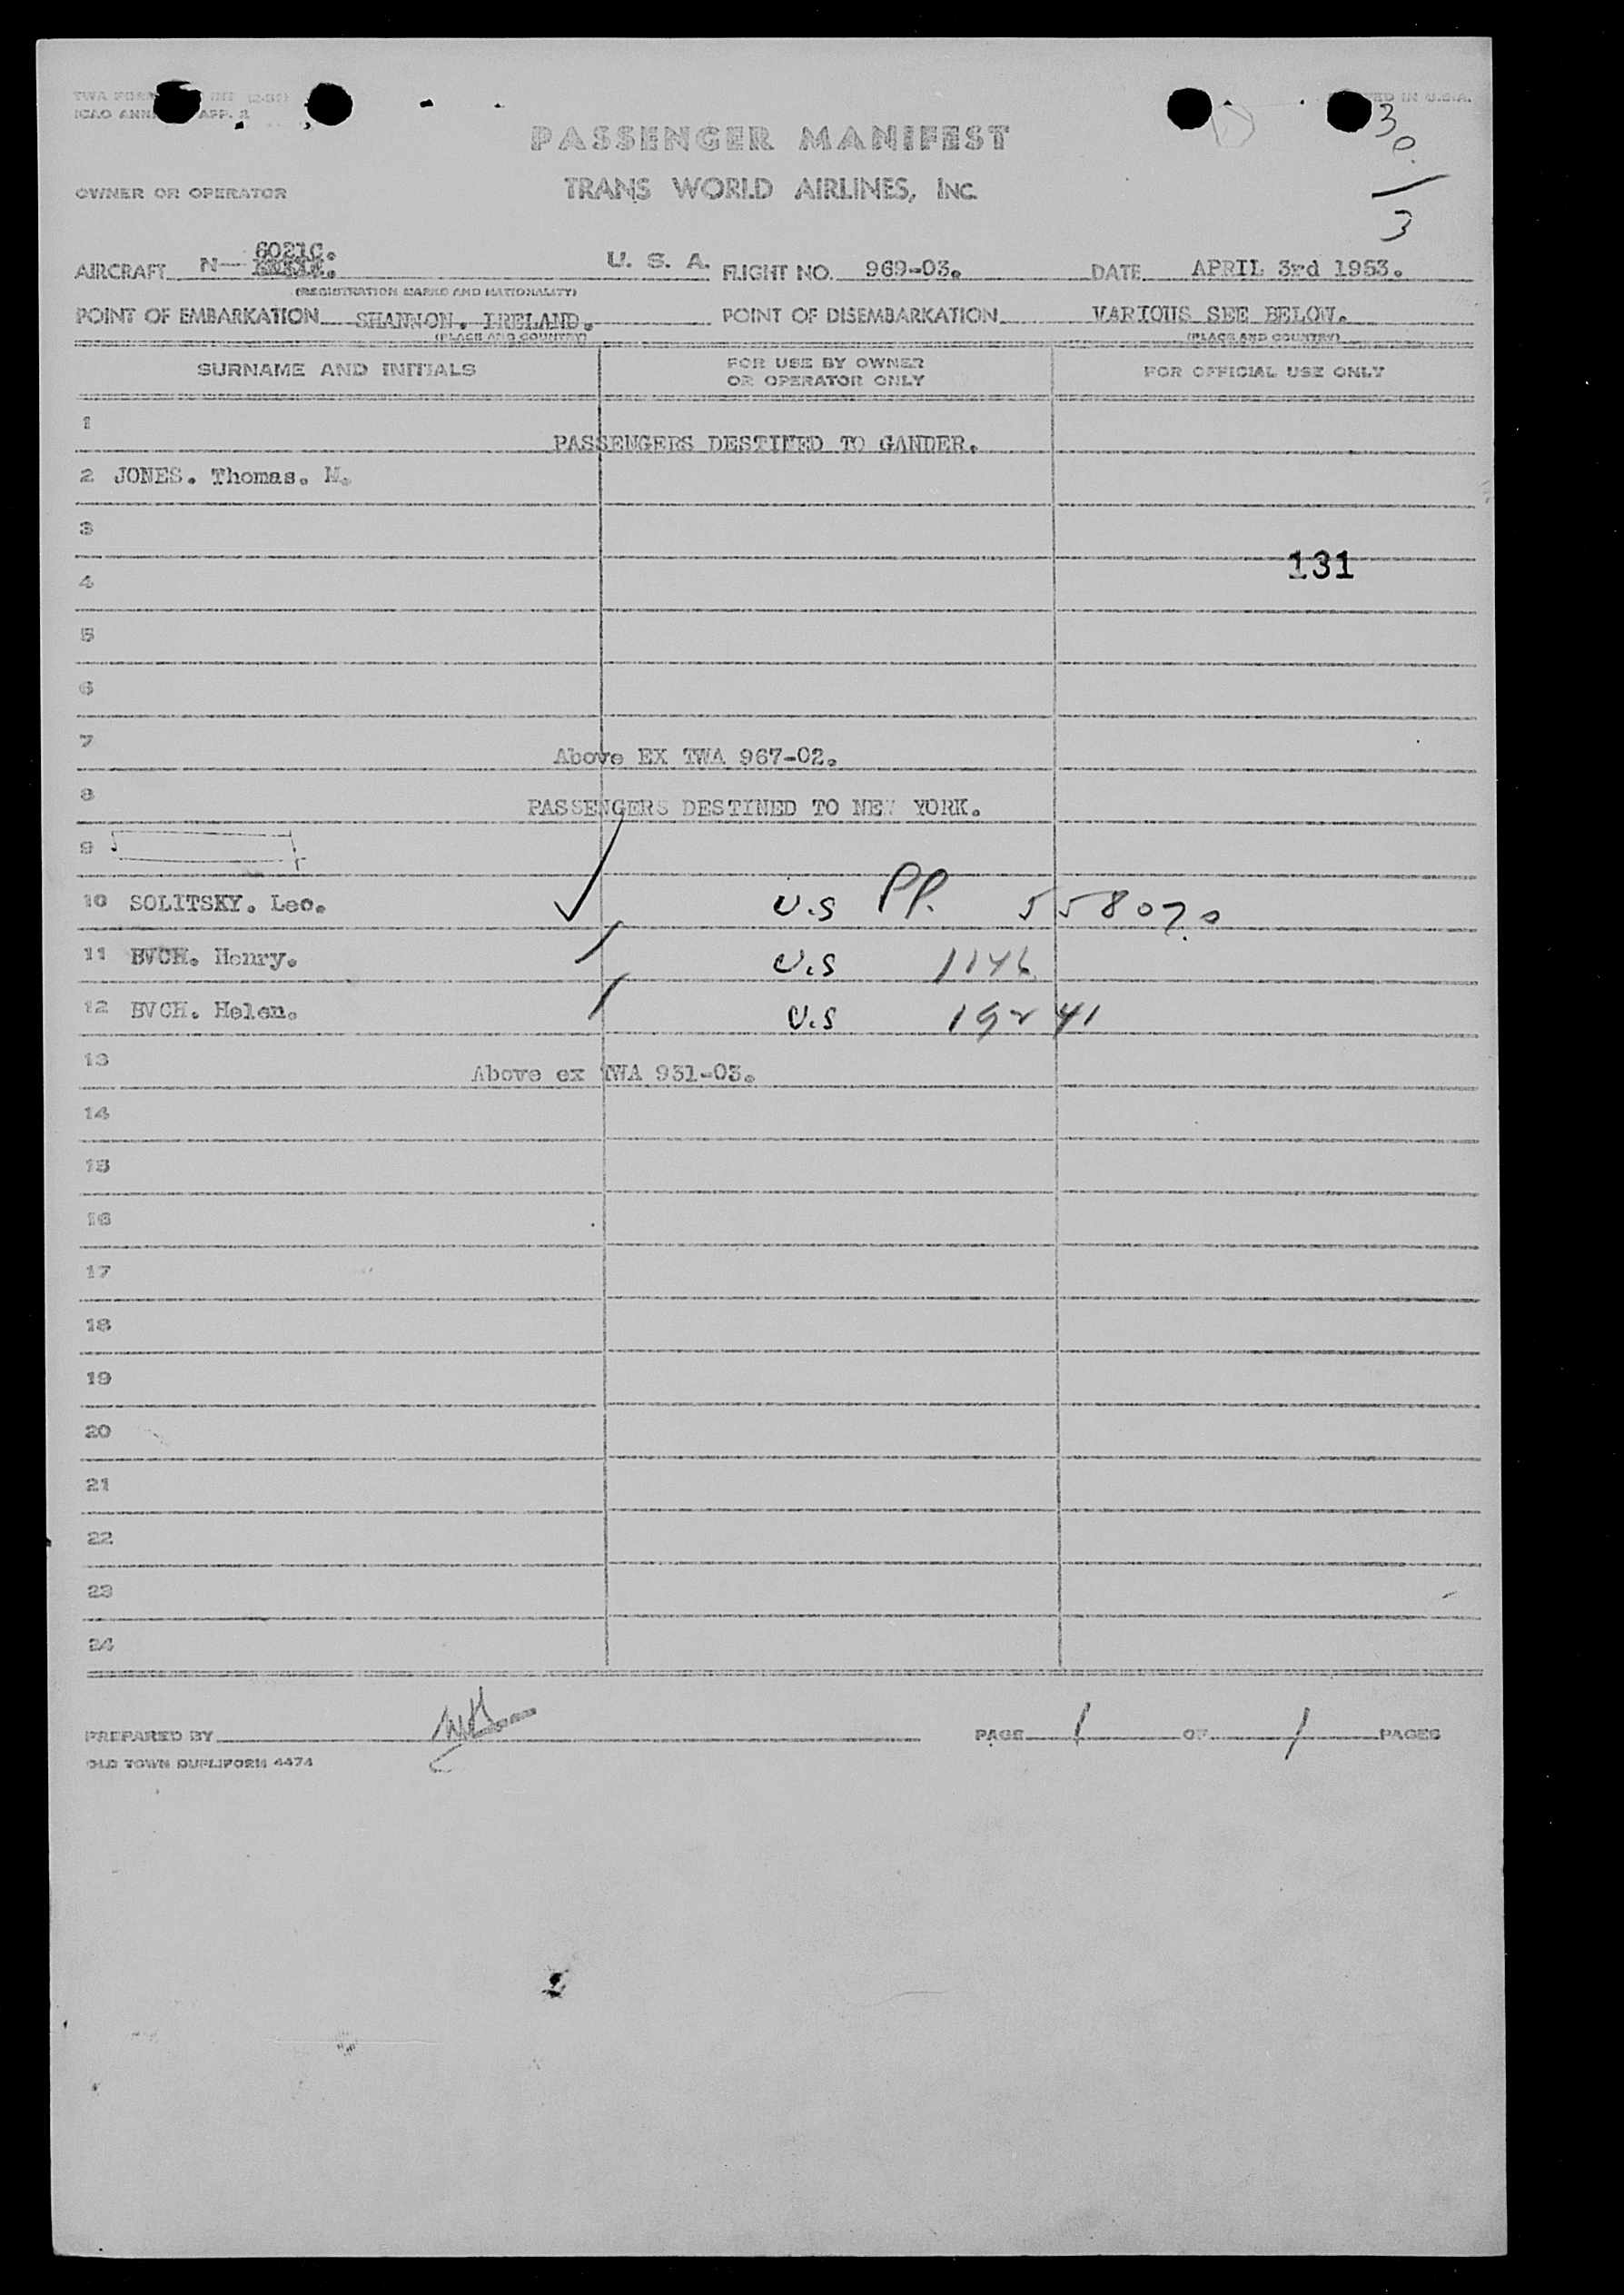 TWA FORM
ICAO ANNEX APP. 2
PRINTED IN U.S.A.
30
PASSENGER MANIFEST
3
OWNER OR OPERATOR TRANS WORLD AIRLINES, INC.
AIRCRAFT N— 6021C. U. S. A. FLIGHT NO. 969-03. DATE APRIL 3rd 1953.
(REGISTRATION MARKS AND NATIONALITY)
POINT OF EMBARKATION SHANNON. IRELAND. POINT OF DISEMBARKATION VARIOUS SEE BELOW.
(PLACE AND COUNTRY) (PLACE AND COUNTRY)
SURNAME AND INITIALS FOR USE BY OWNER OR OPERATOR ONLY FOR OFFICIAL USE ONLY
1 PASSENGERS DESTINED TO GANDER.
2 JONES. Thomas. M.
3
131
4
5
6
7 Above EX TWA 967-02.
8 PASSENGERS DESTINED TO NEW YORK.
9
10 SOLITSKY. Leo. U.S PP. 558070
11 BVCH. Henry. U.S 1146
12 BVCH. Helen. U.S 19241
13 Above ex TWA 931-03.
14
15
16
17
18
19
20
21
22
23
24
PREPARED BY PAGE 1 OF 1 PAGES
OLD TOWN DUPLIFORM 4474
2